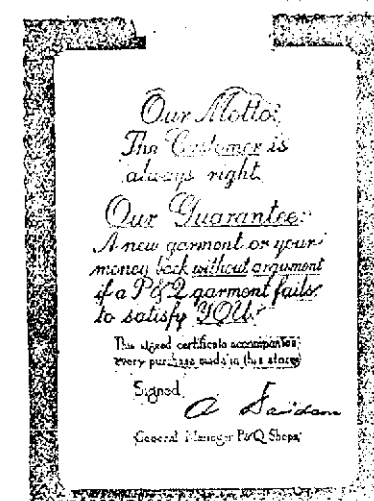 Our Motto:
The Customer is
always right.
Our Guarantee:
A new garment or your
money back without argument
if a P&Q garment fails
to satisfy YOU.
This signed certificate accompanies
every purchase made in this store
Signed
General Manager P&Q Shops